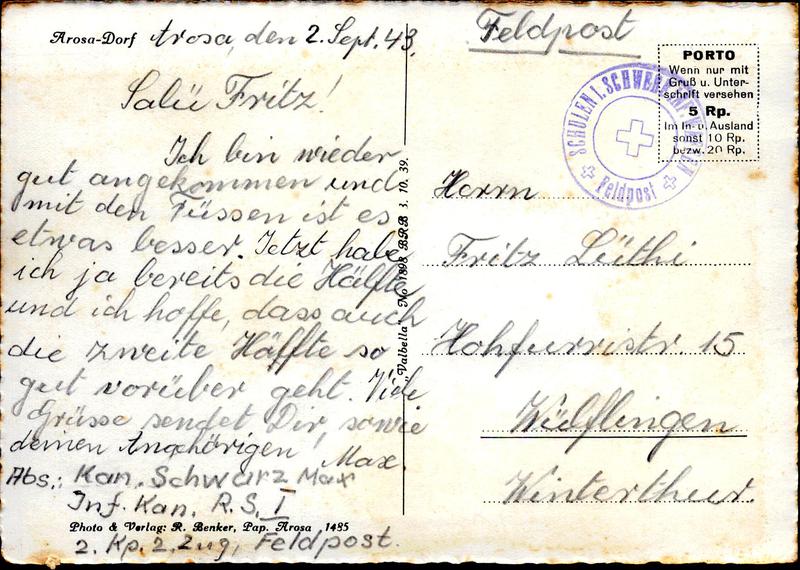 Arosa-Dorf Arosa, den 2. Sept. 43.
Salü Fritz!
Ich bin wieder
gut angekommen und
mit den Füssen ist es
etwas besser. Jetzt habe
ich ja bereits die Hälfte
und ich hoffe, dass auch
die zweite Hälfte so
gut vorüber geht. Viele
Grüsse sendet Dir, sowie
deinen Angehörigen
Max.
Abs.: Kan. Schwarz Max
Inf. Kan. R. S. I
Photo & Verlag: R. Benker, Pap. Arosa 1485
2. Kp. 2. Zug, Feldpost.
"Valbella" No 1898 BRB 3. 10. 39.
Feldpost
PORTO
Wenn nur mit
Gruß u. Unter-
schrift versehen
5 Rp.
Im In- u. Ausland
sonst 10 Rp.
bezw. 20 Rp.
SCHULEN I. SCHWER. INF. WAFFEN
Feldpost
Herrn
Fritz Lüthi
Hohfurristr. 15
Wülflingen
Winterthur.